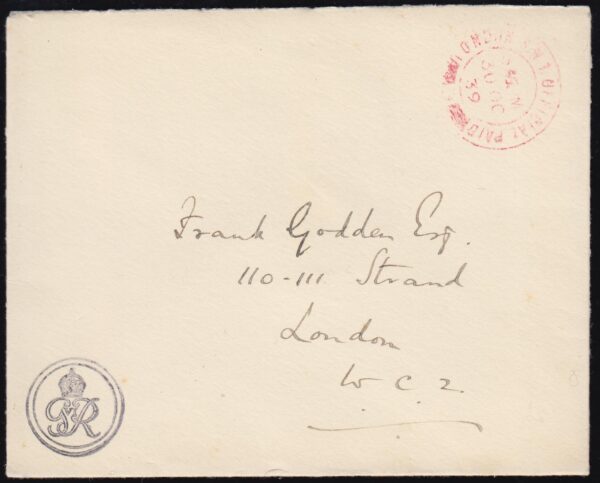 LONDON S.W.1 OFFICIAL PAID
30 OC
39
Frank Godden Esq.
110-111 Strand
London
W C 2.
GR